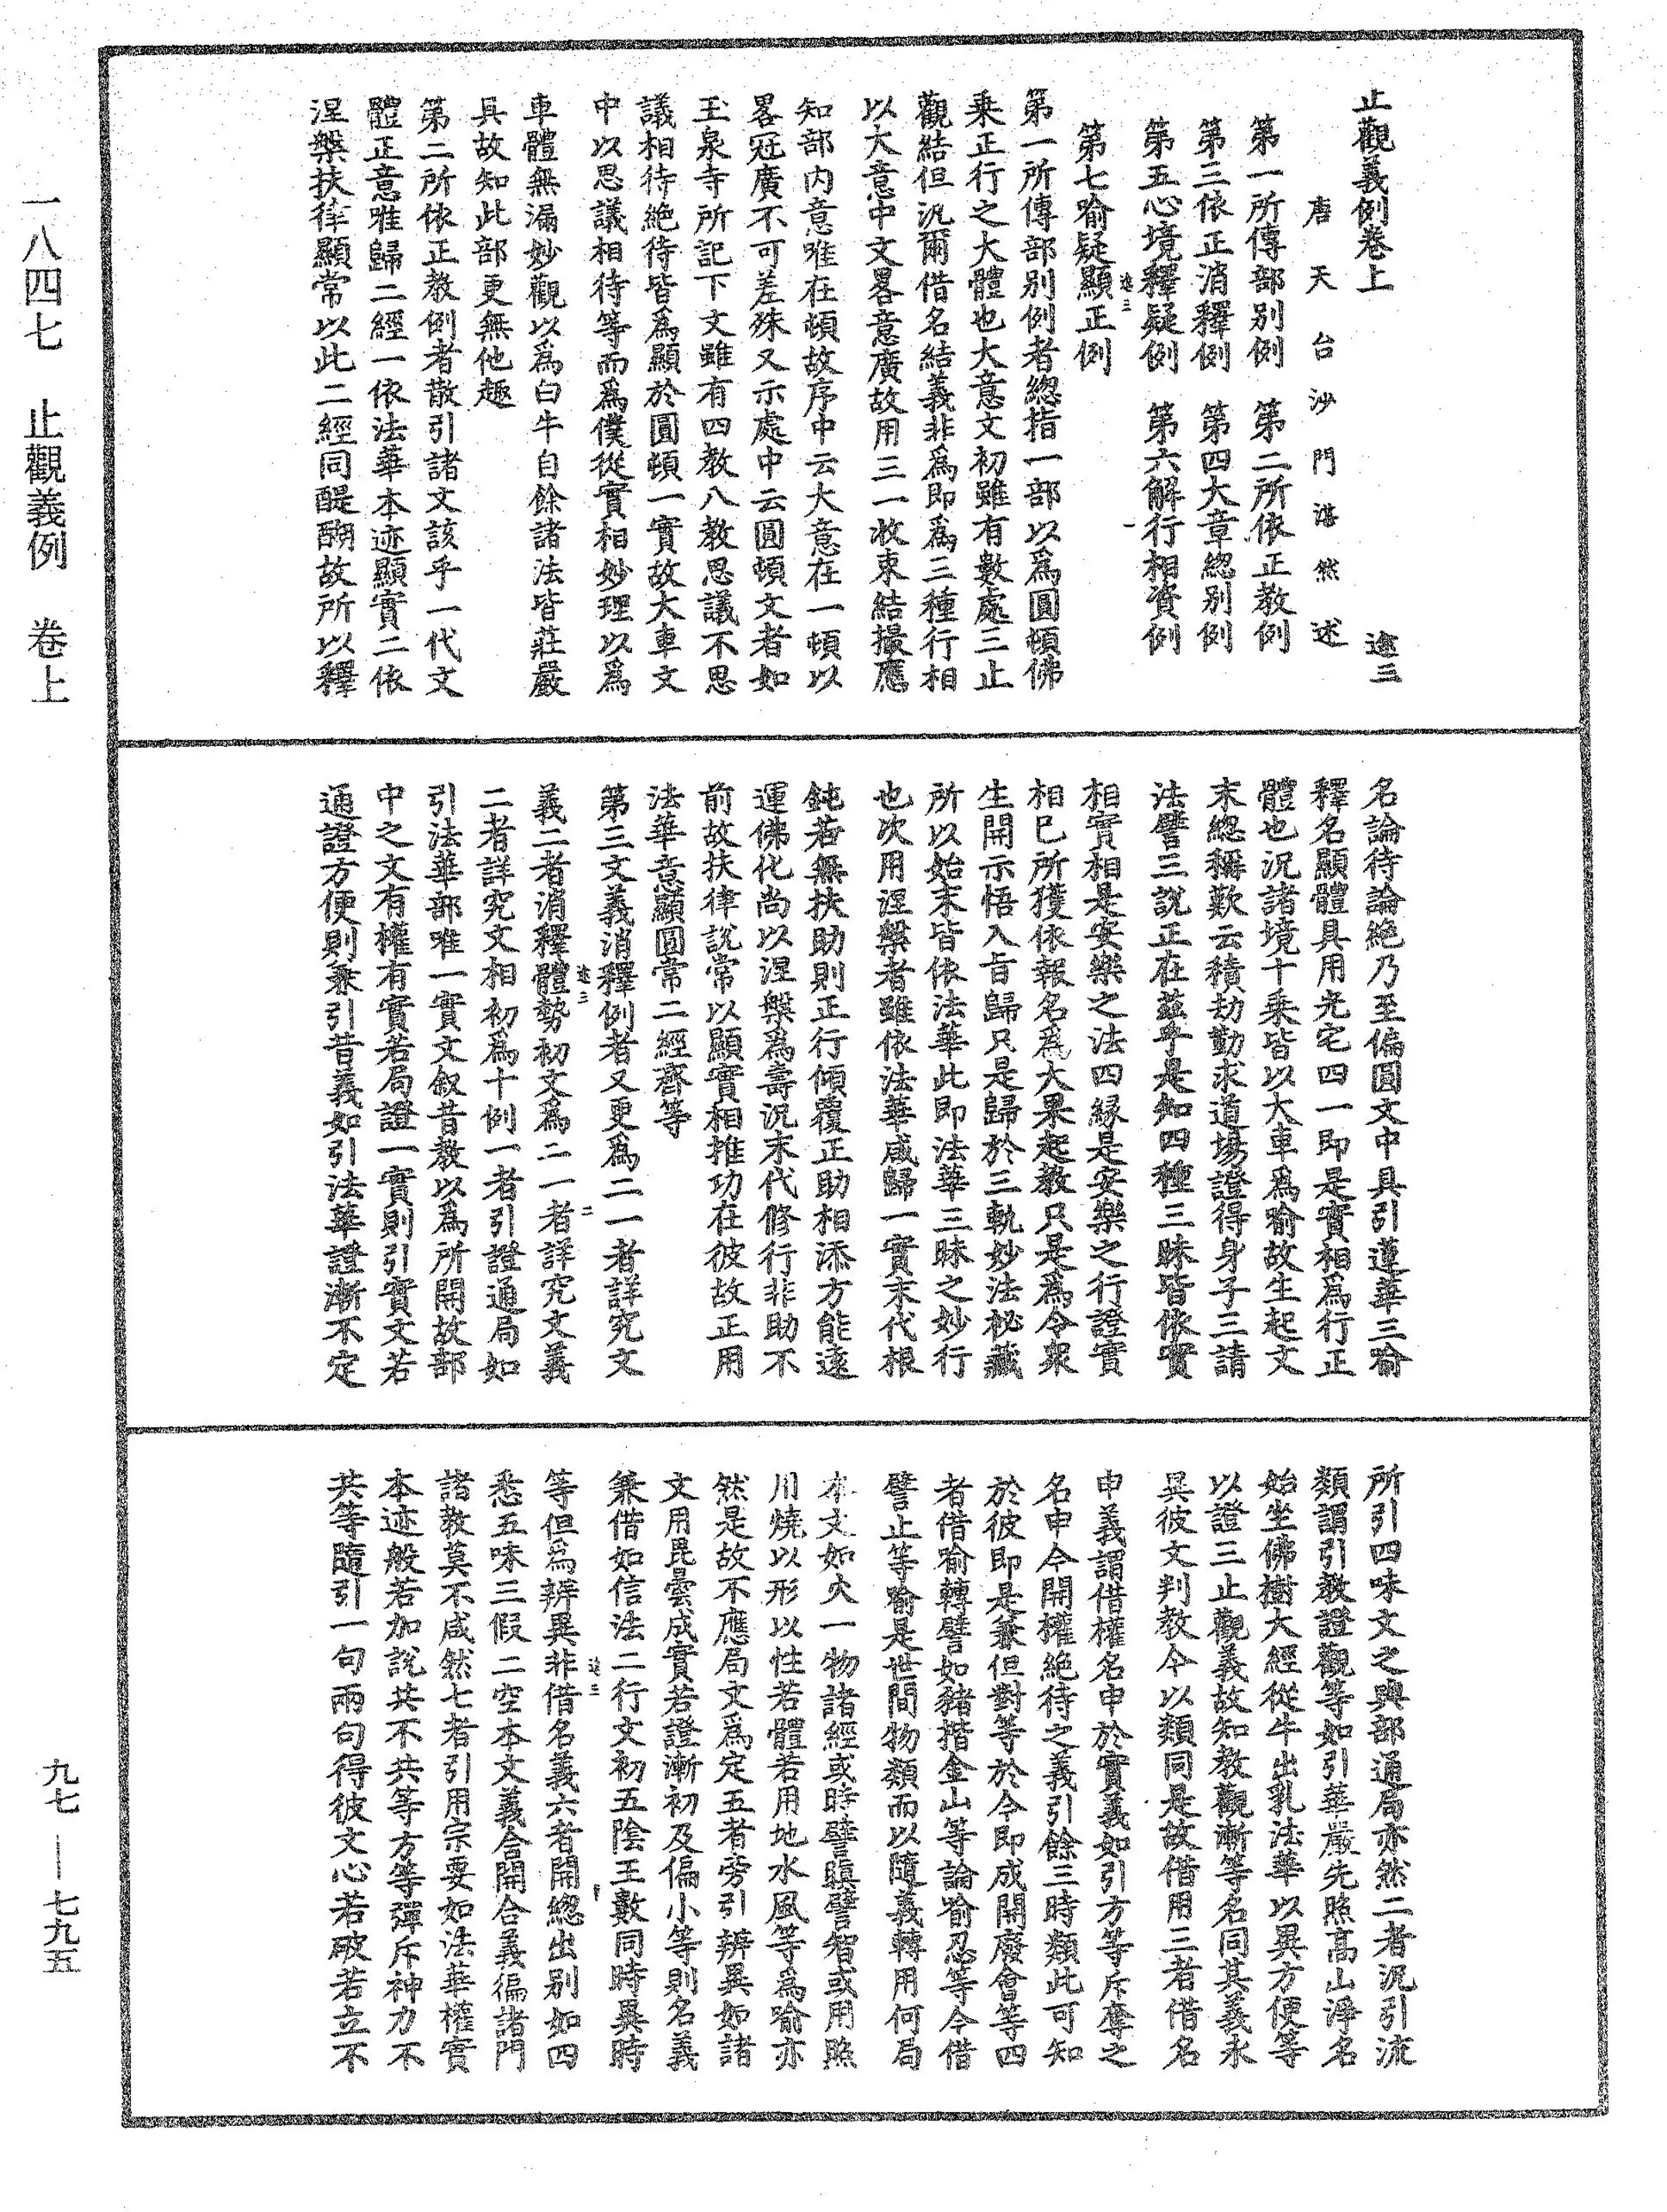 止觀義例卷上　逵三
唐天台沙門湛然述
第一所傳部別例　第二所依正教例
第三依正消釋例　第四大章總別例
第五心境釋疑例　第六解行相資例
第七喻疑顯正例
第一所傳部別例者總指一部以爲圓頓佛
乘正行之大體也大意文初雖有數處三止
觀結但況爾借名結義非爲即爲三種行相
以大意中文畧意廣故用三一收束結撮應
知部内意唯在頓故序中云大意在一頓以
畧冠廣不可差殊又示處中云圓頓文者如
玉泉寺所記下文雖有四教八教思議不思
議相待絶待皆爲顯於圓頓一實故大車文
中以思議相待等而爲僕從實相妙理以爲
車體無漏妙觀以爲白牛自餘諸法皆莊嚴
具故知此部更無他趣
第二所依正教例者散引諸文該乎一代文
體正意唯歸二經一依法華本迹顯實二依
涅槃扶律顯常以此二經同醍醐故所以釋
名論待論絶乃至偏圓文中具引蓮華三喻
釋名顯體具用光宅四一即是實相爲行正
體也況諸境十乘皆以大車爲喻故生起文
末總稱歎云積劫勤求道場證得身子三請
法譬三說正在茲乎是知四種三昧皆依實
相實相是安樂之法四緣是安樂之行證實
相已所獲依報名爲大果起教只是爲令衆
生開示悟入旨歸只是歸於三軌妙法祕藏
所以始末皆依法華此即法華三昧之妙行
也次用涅槃者雖依法華咸歸一實末代根
鈍若無扶助則正行傾覆正助相添方能遠
運佛化尚以涅槃爲壽況末代修行非助不
前故扶律說常以顯實相推功在彼故正用
法華意顯圓常二經齊等
第三文義消釋例者又更爲二一者詳究文
義二者消釋體勢初文爲二一者詳究文義
二者詳究文相初爲十例一者引證通局如
引法華部唯一實文叙昔教以爲所開故部
中之文有權有實若局證一實則引實文若
通證方便則兼引昔義如引法華證漸不定
所引四味文之與部通局亦然二者況引流
類謂引教證觀等如引華嚴先照高山淨名
始坐佛樹大經從牛出乳法華以異方便等
以證三止觀義故知教觀漸等名同其義永
異彼文判教今以類同是故借用三者借名
申義謂借權名申於實義如引方等斥奪之
名申今開權絶待之義引餘三時類此可知
於彼即是兼但對等於今即成開廢會等四
者借喻轉譬如豬揩金山等論喻忍等今借
譬止等喻是世間物類而以隨義轉用何局
本文如火一物諸經或時譬瞋譬智或用照
川燒以形以性若體若用地水風等爲喻亦
然是故不應局文爲定五者旁引辨異如諸
文用毘曇成實若證漸初及偏小等則名義
兼借如信法二行文初五陰王數同時異時
等但爲辨異非借名義六者開總出別如四
悉五味三假二空本文義合開合義徧諸門
諸教莫不咸然七者引用宗要如法華權實
本迹般若加說共不共等方等彈斥神力不
共等隨引一句兩句得彼文心若破若立不
一八四七　止觀義例　卷上
九七—七九五